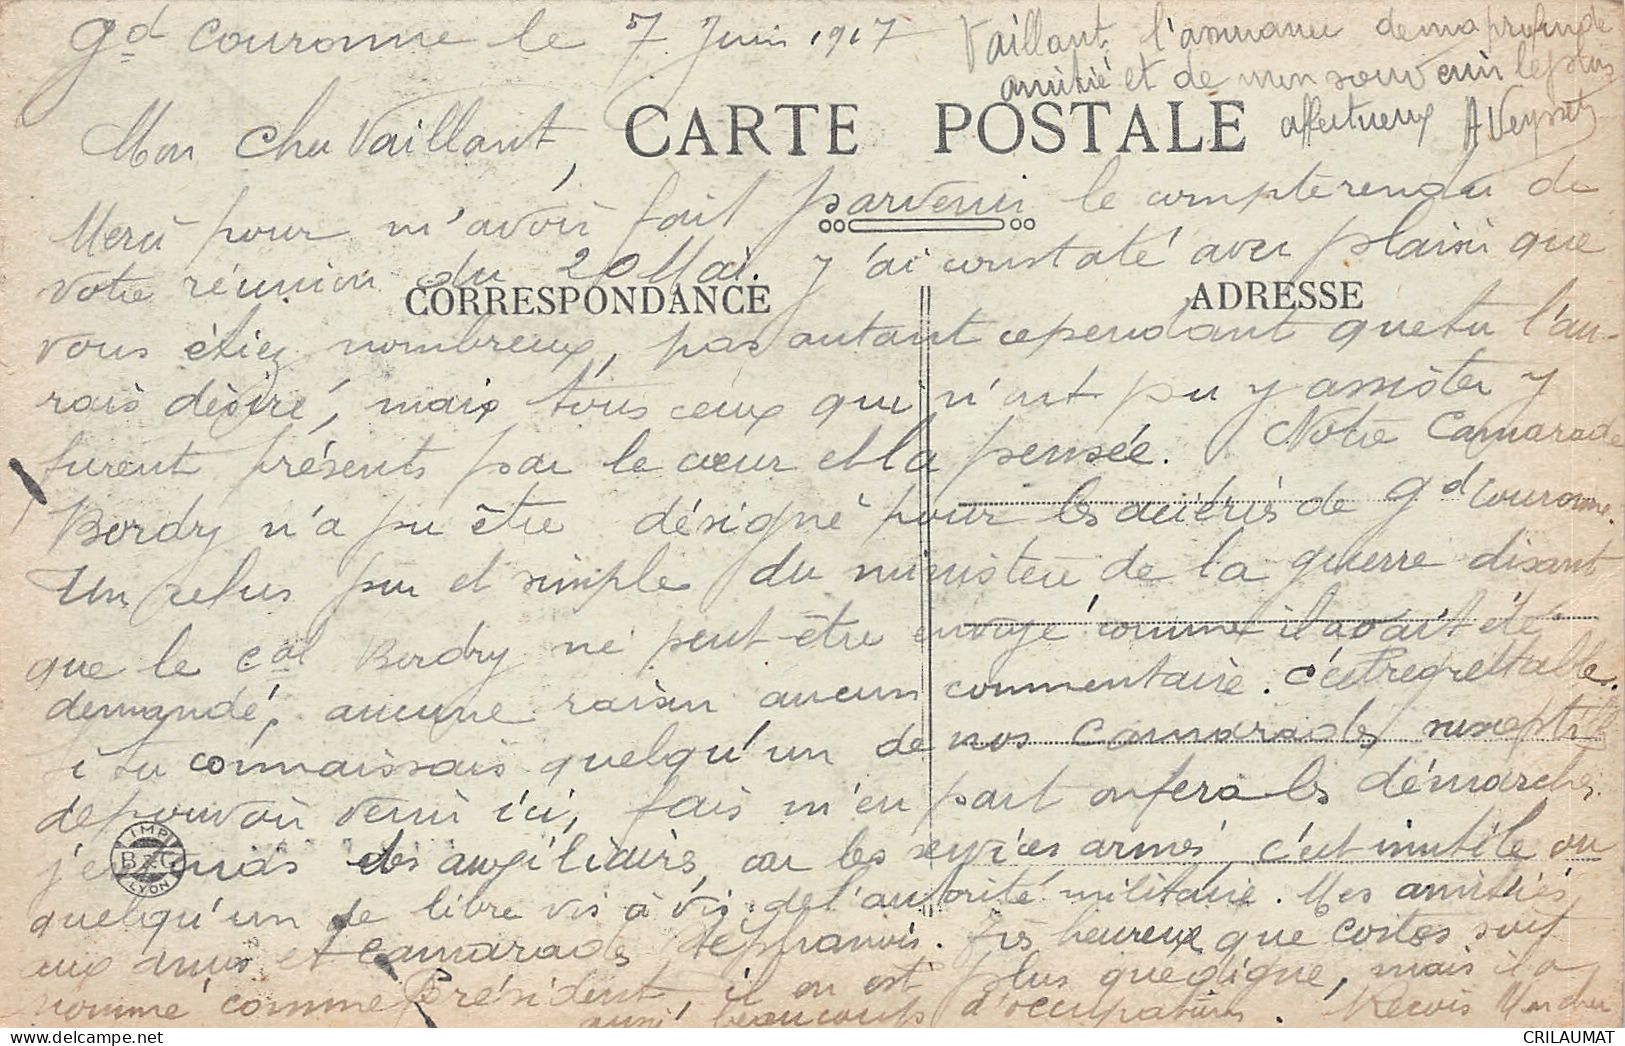 gd Couronne le 7 Juin 1917
Mon Cher Vaillant,
CARTE POSTALE
Merci pour m'avoir fait parvenir le compte rendu de
votre réunion du 20 Mai. J'ai constaté avec plaisir que
CORRESPONDANCE
ADRESSE
vous étiez nombreux, pas autant cependant que tu l'au-
rais désiré, mais tous ceux qui n'ont pu y assister y
furent présents par le cœur et la pensée. Notre Camarade
Bordry n'a pu être désigné pour les aciéries de gd Couronne.
Un refus pur et simple du ministère de la guerre disant
que le cal Bordry ne peut être envoyé comme il avait été
demandé, aucune raison aucun commentaire. C'est regrettable.
i tu connaissais quelqu'un de nos camarades susceptible
de pouvoir venir ici, fais m'en part on fera les démarches.
j'entends des auxiliaires, car les services armés, c'est inutile ou
quelqu'un de libre vis à vis de l'autorité militaire. Mes amitiés
aux amis et camarades Stéphanois. Très heureux que Costes soit
nommé comme Président, il en est plus que digne, mais il a
aussi beaucoup d'occupations. Reçois Mon cher
Vaillant, l'assurance de ma profonde
amitié et de mon souvenir le plus
affectueux AVeysset
IMP
B&G
LYON
CRILAUMAT